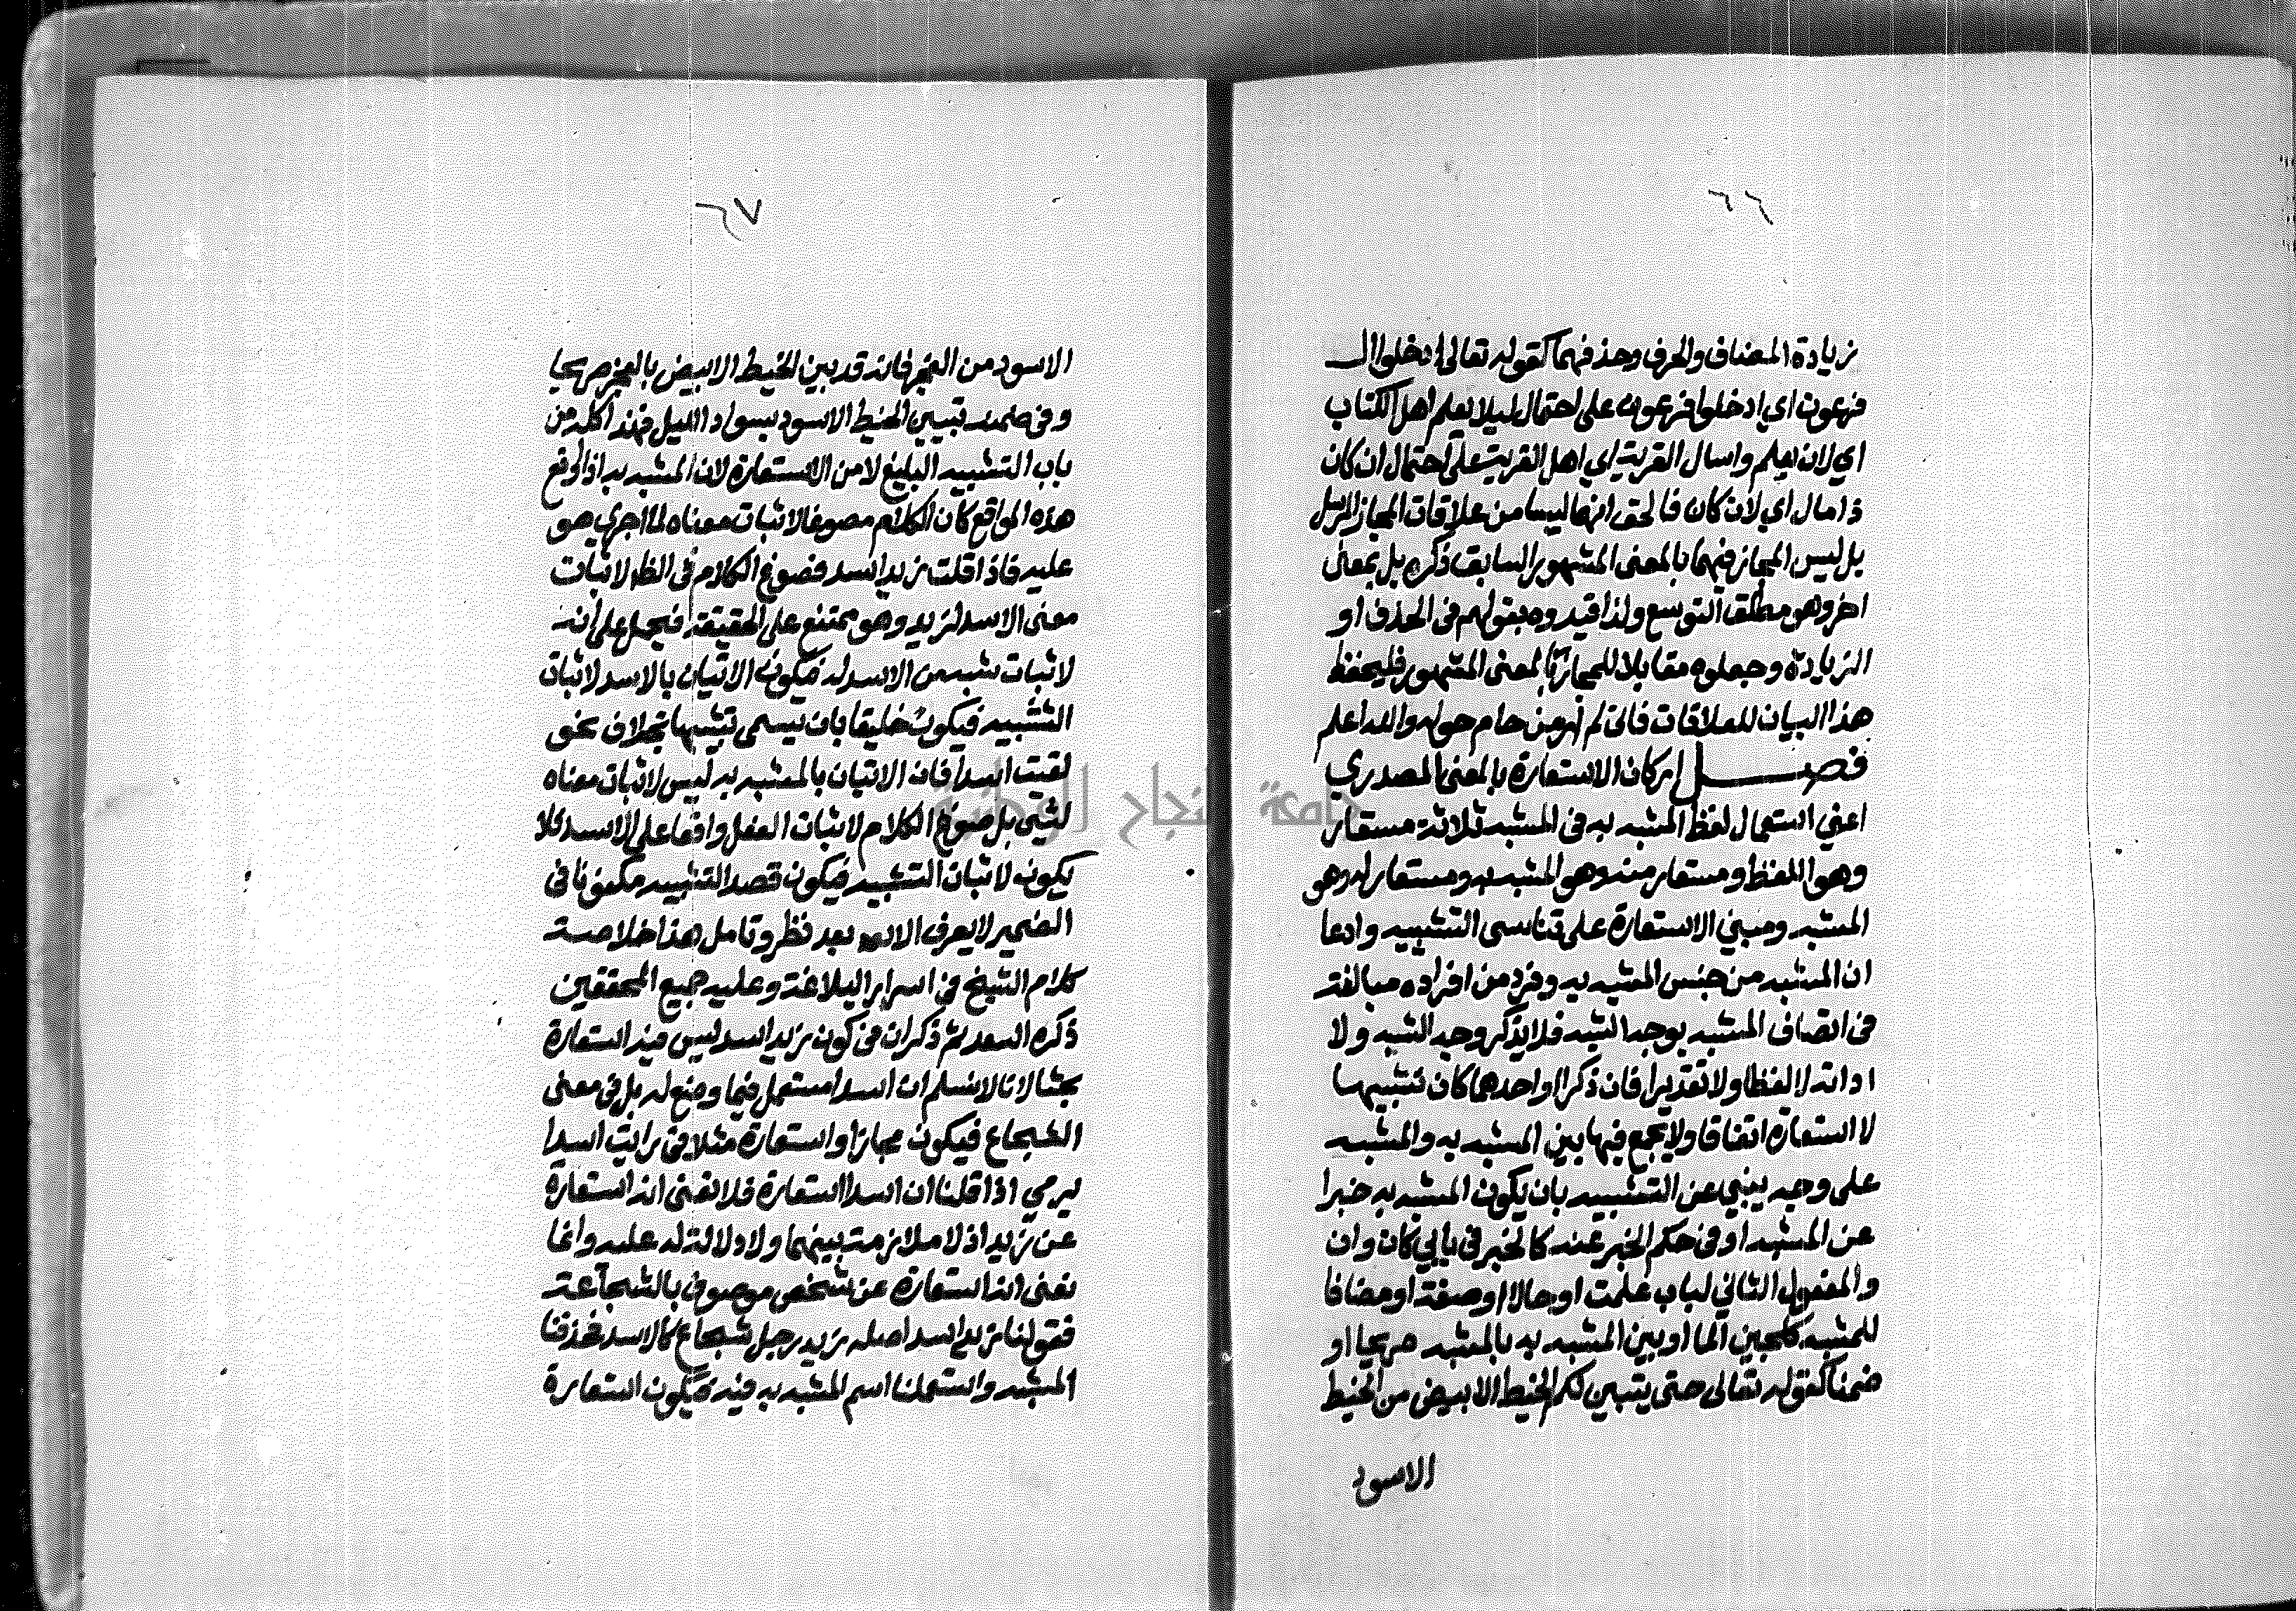 ٦٦
زيادة المضاف والحرف وحذفهما كقوله تعالى ادخلوا ال
فرعون اي ادخلوا فرعون على احتمال ليلا يعلم اهل الكتاب
اي لان يعلم واسال القرية اي اهل القرية على احتمال ان كان
ذا مال اي لأن كان فالحق انها ليسا من علاقات المجاز المرسل
بل ليس المجاز فيهما بالمعنى المشهور السابق ذكره بل بمعنى
اخر وهو مطلق التوسع ولذا قيدوه بقولهم في الحذف او
الزيادة وجعلوه مقابلا للمجاز بالمعنى المشهور فليحفظ
هذا البيان للعلاقات فاني لم ار من حام حوله والله اعلم
فصل اركان الاستعارة بالمعنى المصدري
اعني استعمال لفظ المشبه به في المشبه ثلاثة مستعار
وهو اللفظ ومستعار منه وهو المشبه به ومستعار له وهو
المشبه ومبني الاستعارة على تناسى التشبيه وادعا
ان المشبه من جنس المشبه به وفرد من افراده مبالغة
في اتصاف المشبه بوجه الشبه فلا يذكر وجه الشبه ولا
اداته لا لفظا ولا تقديرا فان ذكرا او احدهما كان تشبيها
لا استعارة اتفاقا ولا يجمع فيها بين المشبه به والمشبه
على وجه ينبي عن التشبيه بان يكون المشبه به خبرا
عن المشبه او في حكم الخبر عنه كالخبر في بابي كان وان
والمفعول الثاني لباب علمت او حالا او صفة او مضافا
للمشبه كلجين الما او بين المشبه به بالمشبه صريحا او
ضمنا كقوله تعالى حتى يتبين لكم الخيط الابيض من الخيط
الاسود
٦٧
الاسود من الفجر فانه قد بين الخيط الابيض بالفجر صريحا
وفي ضمنه تبيين الخيط الاسود بسواد الليل فهذا كله من
باب التشبيه البليغ لا من الاستعارة لان المشبه به اذا وقع
هذه المواقع كان الكلام مصوغا لاثبات معناه لما اجري هو
عليه فاذا قلت زيد اسد فصوغ الكلام في الظ لاثبات
معنى الاسد لزيد وهو ممتنع على الحقيقة فيحمل على انه
لاثبات شبه من الاسد له فيكون الاتيان بالاسد لاثبات
التشبيه فيكون خليقا بان يسمى تشبيها بخلاف نحو
لقيت اسدا فان الاتيان بالمشبه به ليس لاثبات معناه
لشي بل صوغ الكلام لاثبات الفعل واقعا على الاسد فلا
يكون لاثبات التشبيه فيكون قصد التشبيه مكنونا في
الضمير لا يعرف الا بعد نظر وتامل هذا خلاصة
كلام الشيخ في اسرار البلاغة وعليه جميع المحققين
ذكره السعد ثم ذكر ان في كون زيد اسد ليس فيه استعارة
بحثا لانا لا نسلم ان اسدا مستعمل فيما وضع له بل في معنى
الشجاع فيكون مجازا واستعارة مثلا في رايت اسدا
يرمي اذا قلنا ان اسدا استعارة فلا نعني انه استعارة
عن زيد اذ لا ملازمة بينهما ولا دلالة له عليه وانما
نعني انه استعارة عن شخص موصوف بالشجاعة
فقولنا زيد اسد اصله زيد رجل شجاع كالاسد فحذفنا
المشبه واستعملنا اسم المشبه به فيه فيكون استعارة
جامعة النجاح الوطنية